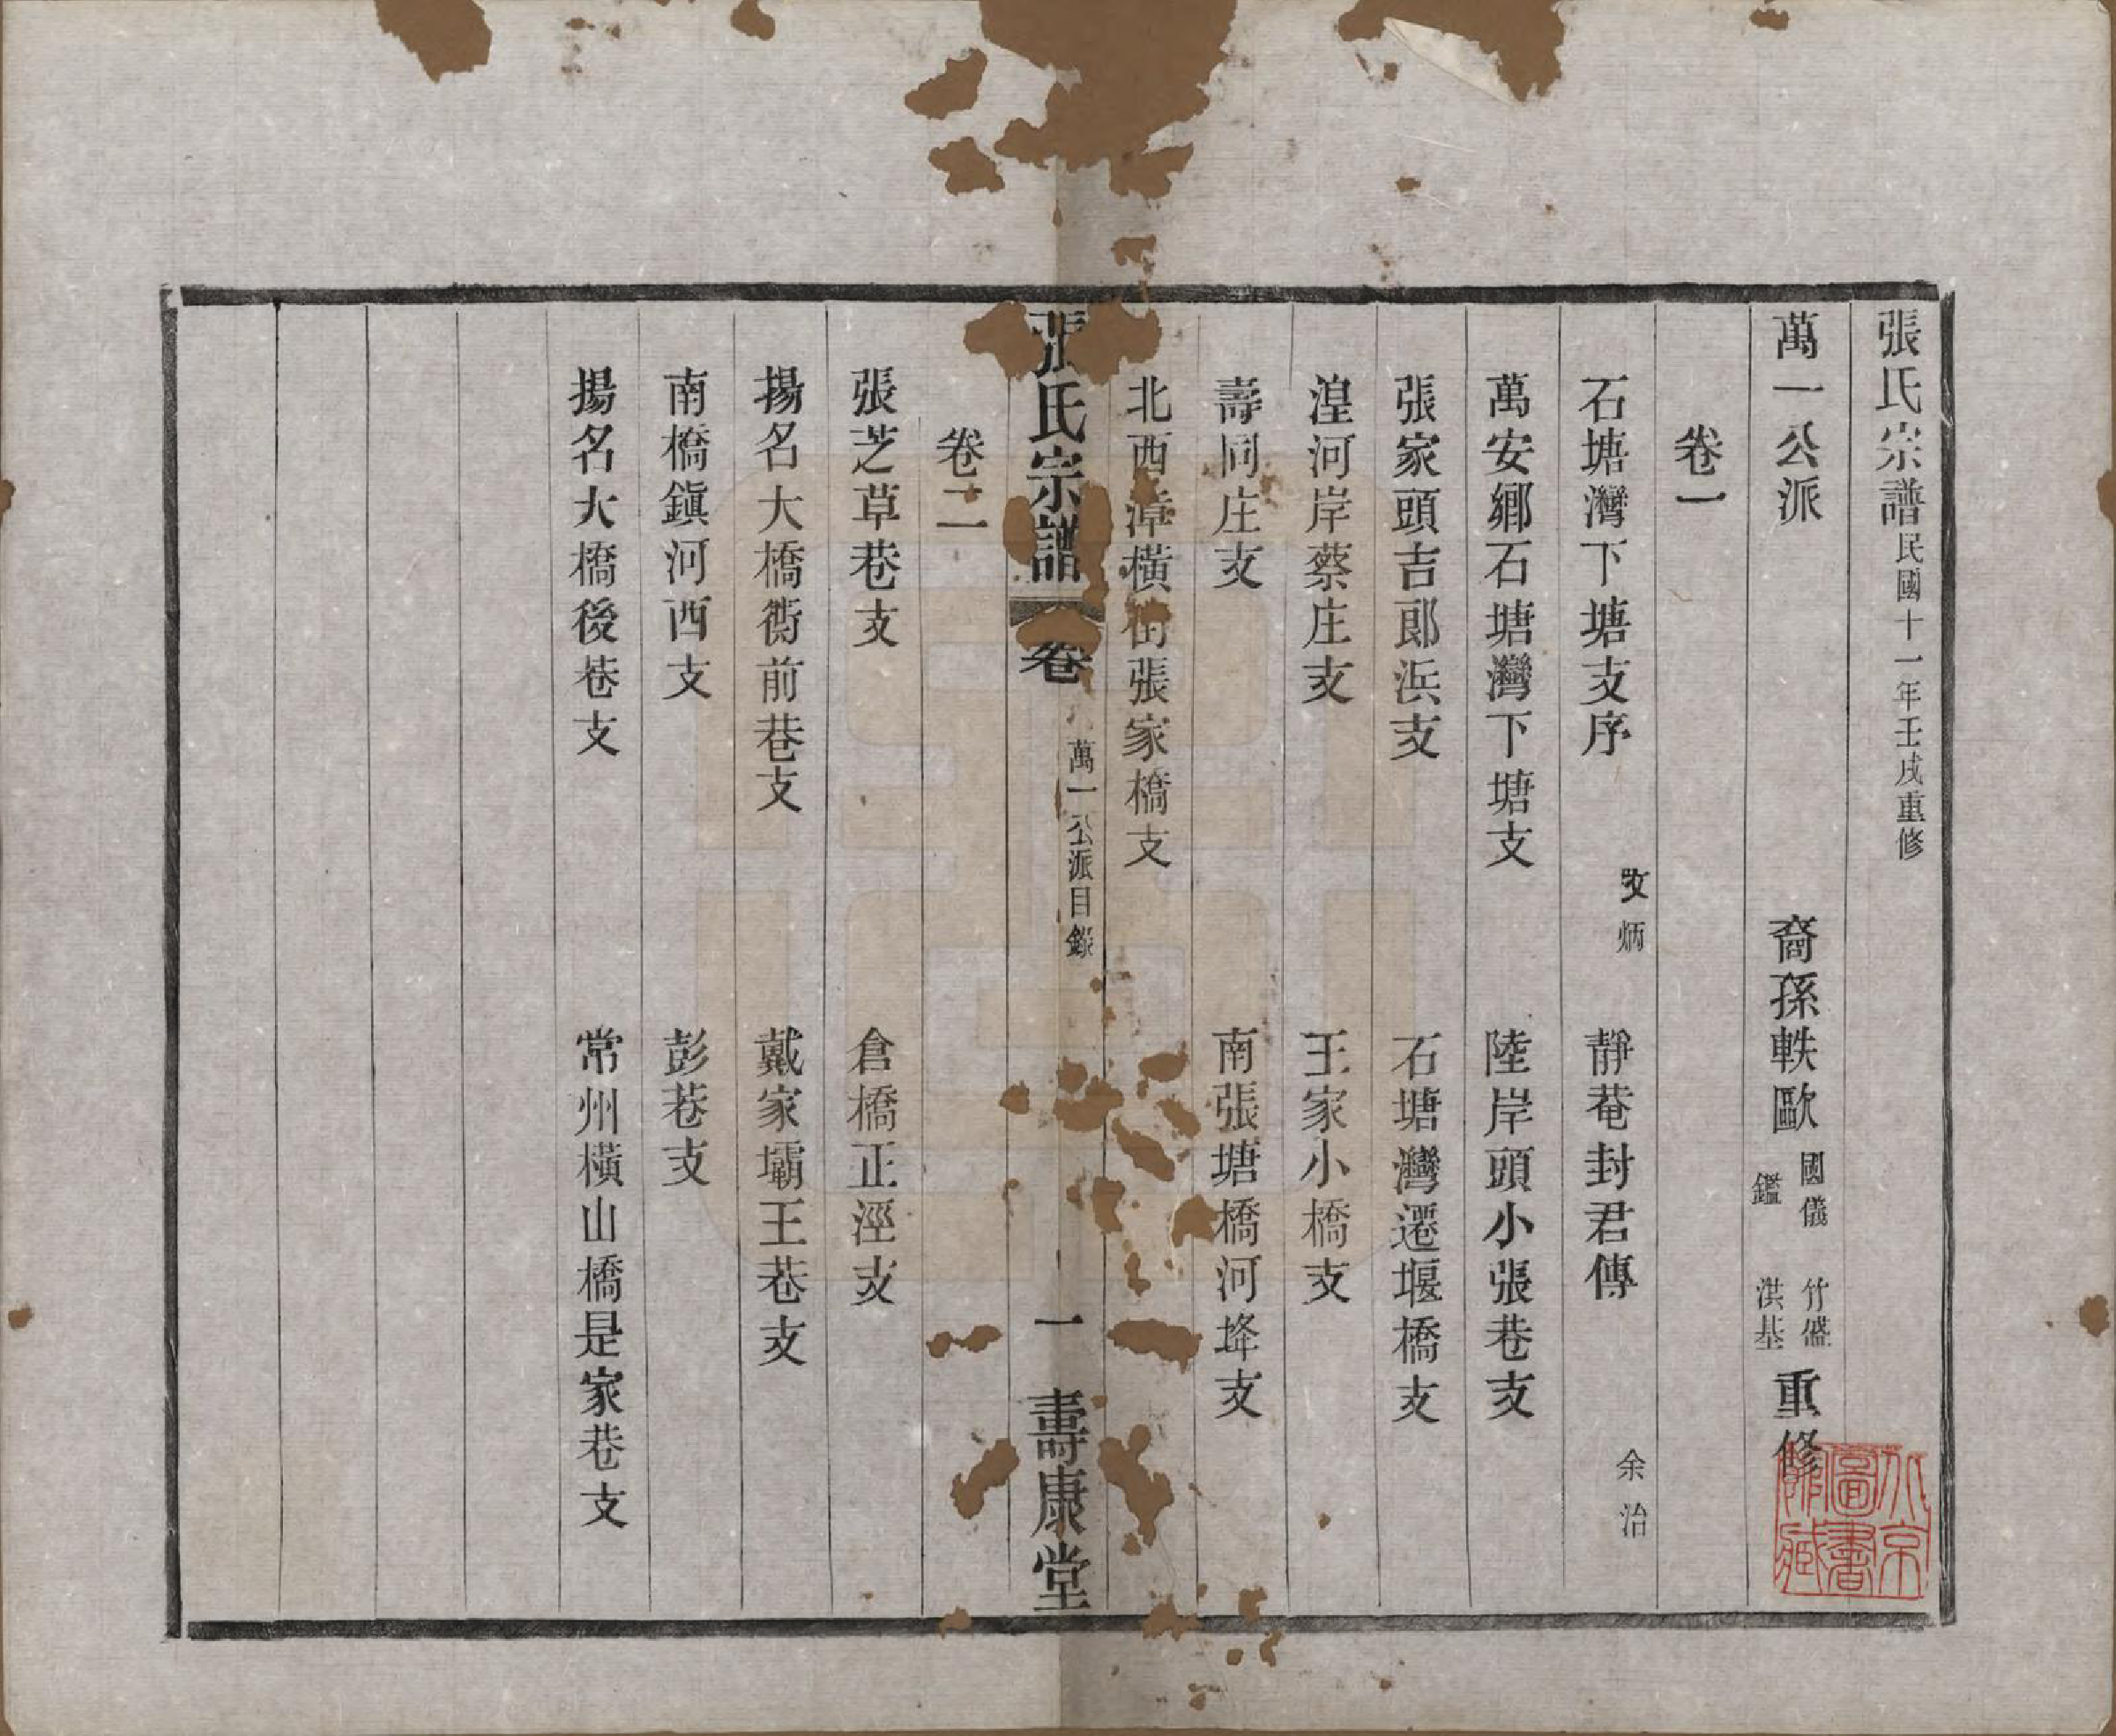 張氏宗譜民國十一年壬戌重修
萬一公派 裔孫軼歐 國儀 鑑 竹盛 洪基 重修
卷一
石塘灣下塘支序 攷炳 靜菴封君傳 余治
萬安鄉石塘灣下塘支 陸岸頭小張巷支
張家頭吉郎浜支 石塘灣遷堰橋支
湟河岸蔡庄支 王家小橋支
壽同庄支 南張塘橋河夅支
北西漳橫街張家橋支
張氏宗譜 卷 萬一公派目錄 一 壽康堂
卷二
張芝草巷支 倉橋正涇支
揚名大橋衖前巷支 戴家壩王巷支
南橋鎭河西支 彭巷支
揚名大橋後巷支 常州橫山橋是家巷支
北京圖書館藏